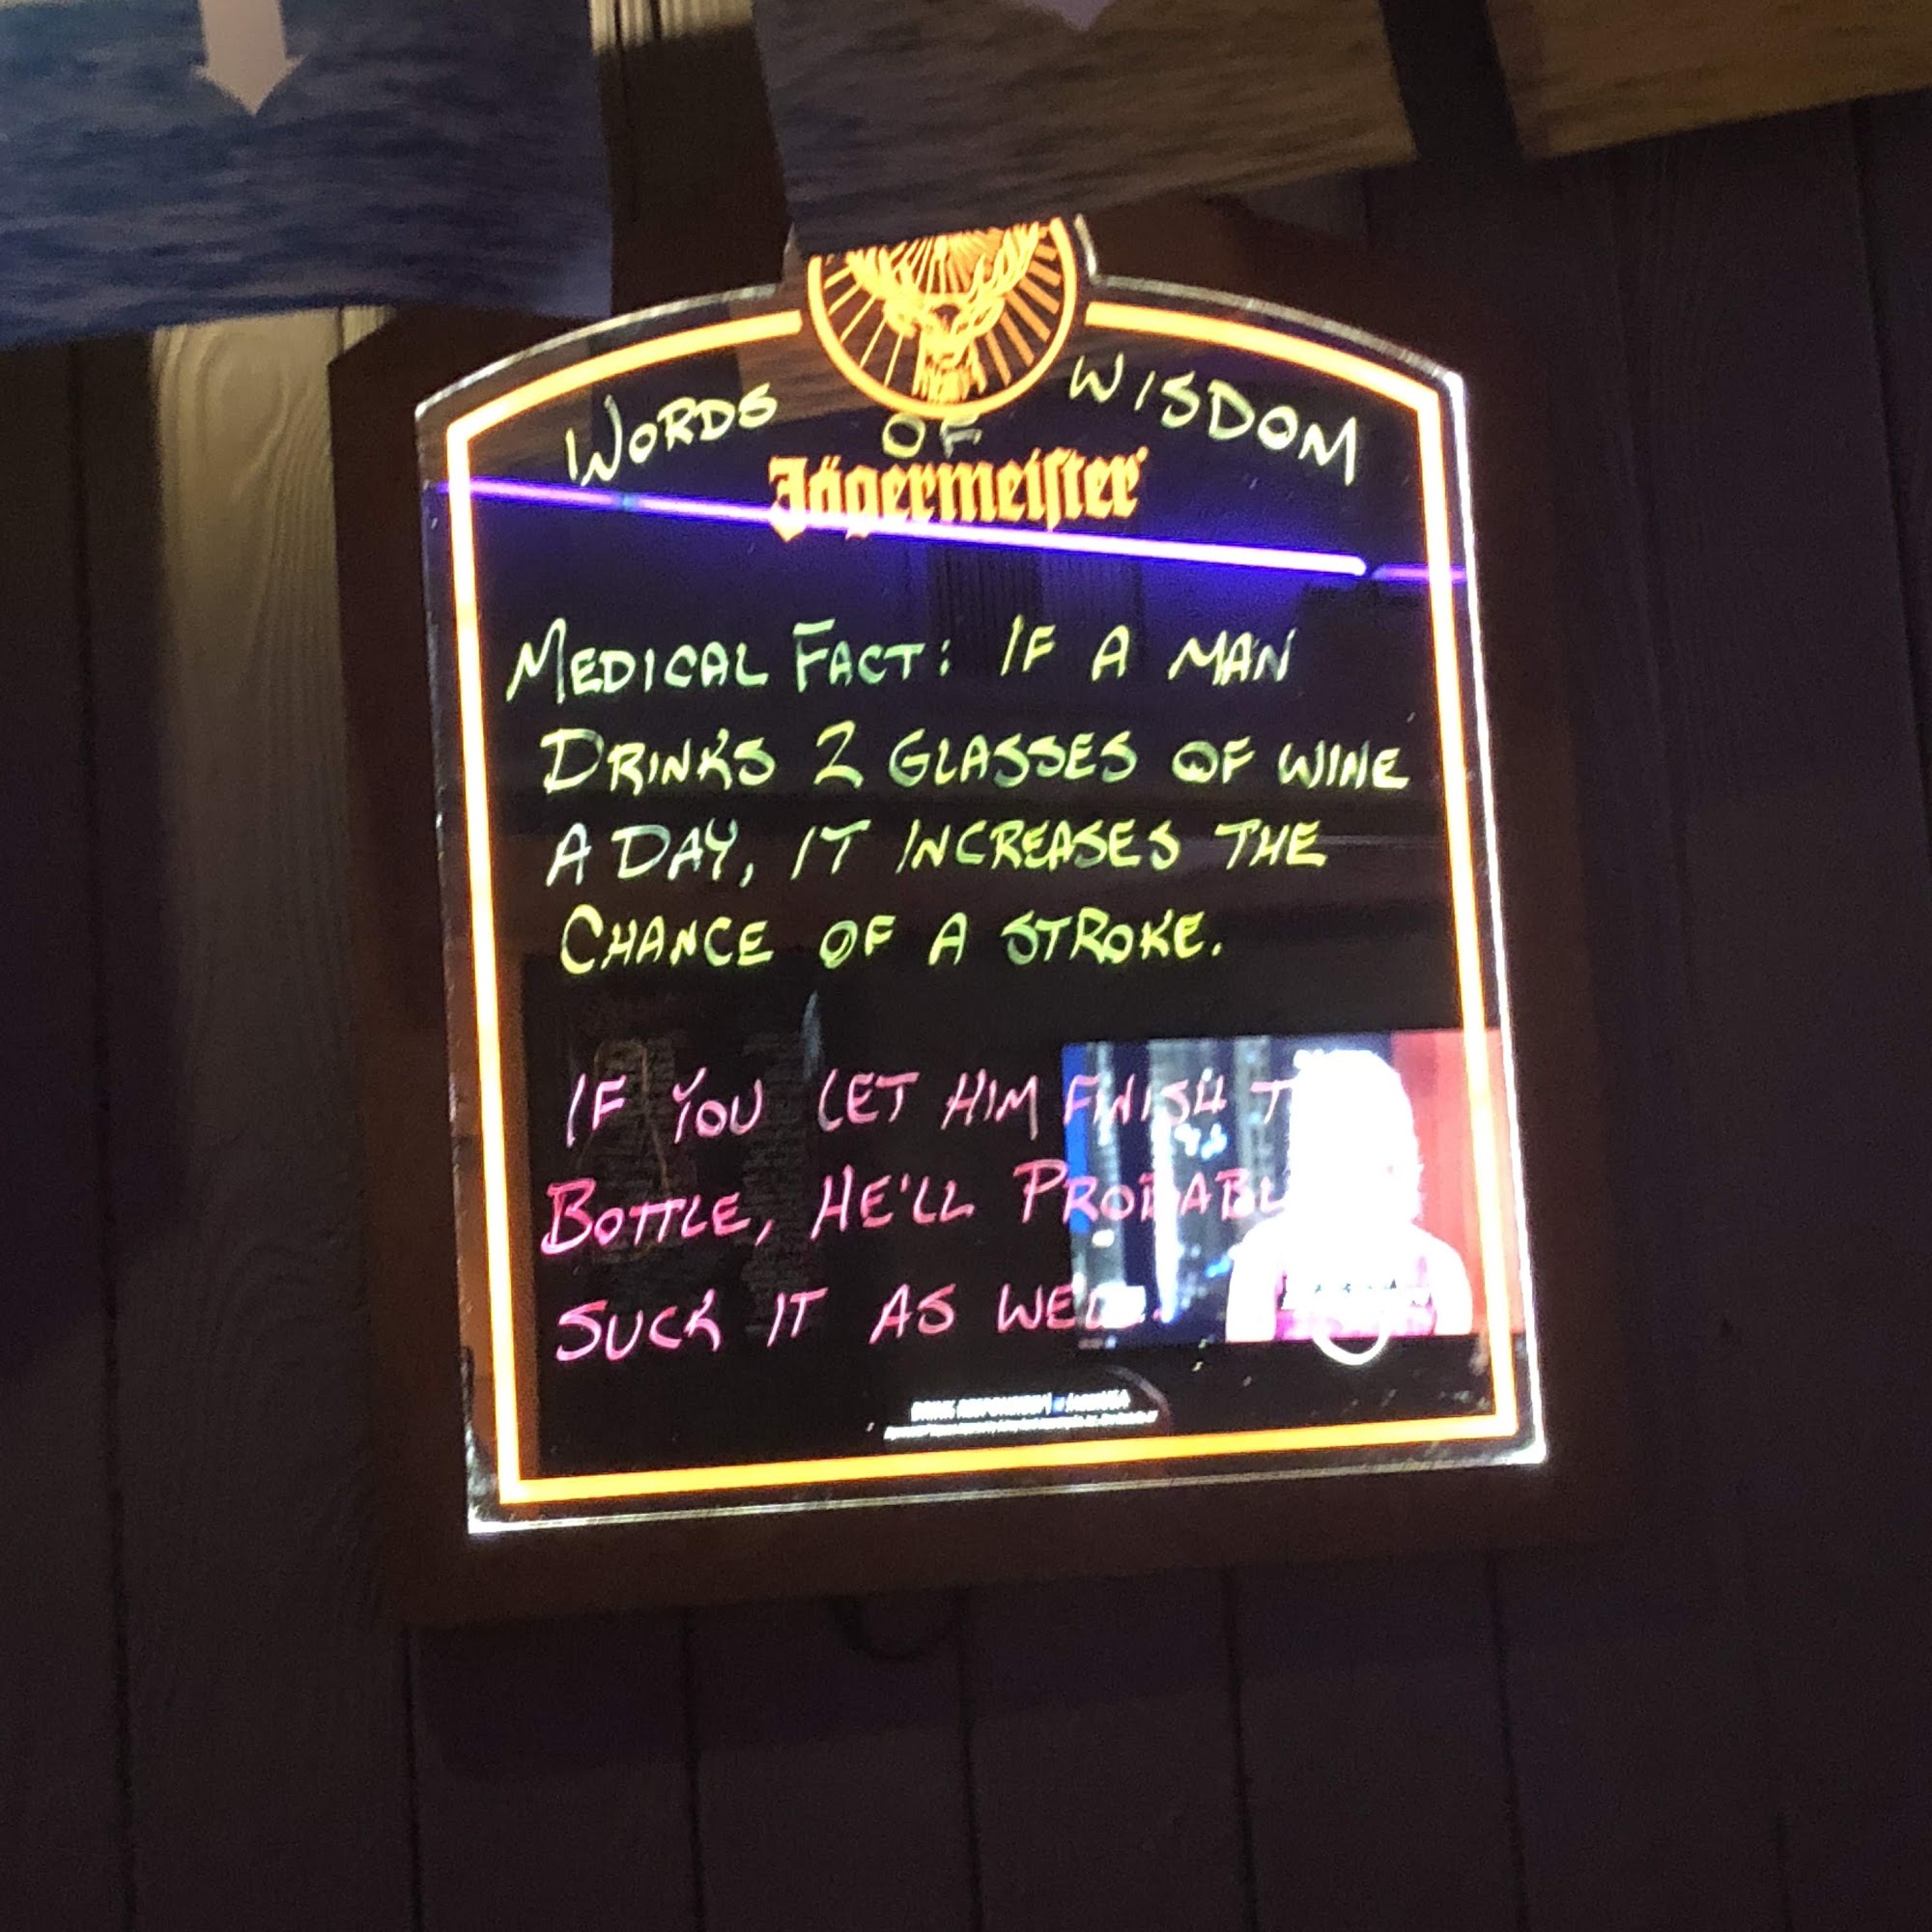 WORDS OF WISDOM
Jägermeiſter
MEDICAL FACT: IF A MAN
DRINKS 2 GLASSES OF WINE
A DAY, IT INCREASES THE
CHANCE OF A STROKE.
IF YOU LET HIM FINISH
BOTTLE, HE'LL PROBABL
SUCK IT AS WELL.